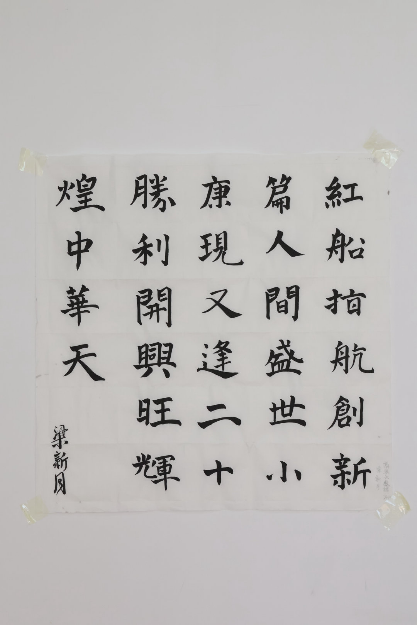 紅船指航創新
篇人間盛世小
康現又逢二十
勝利開興旺輝
煌中華天
梁新月